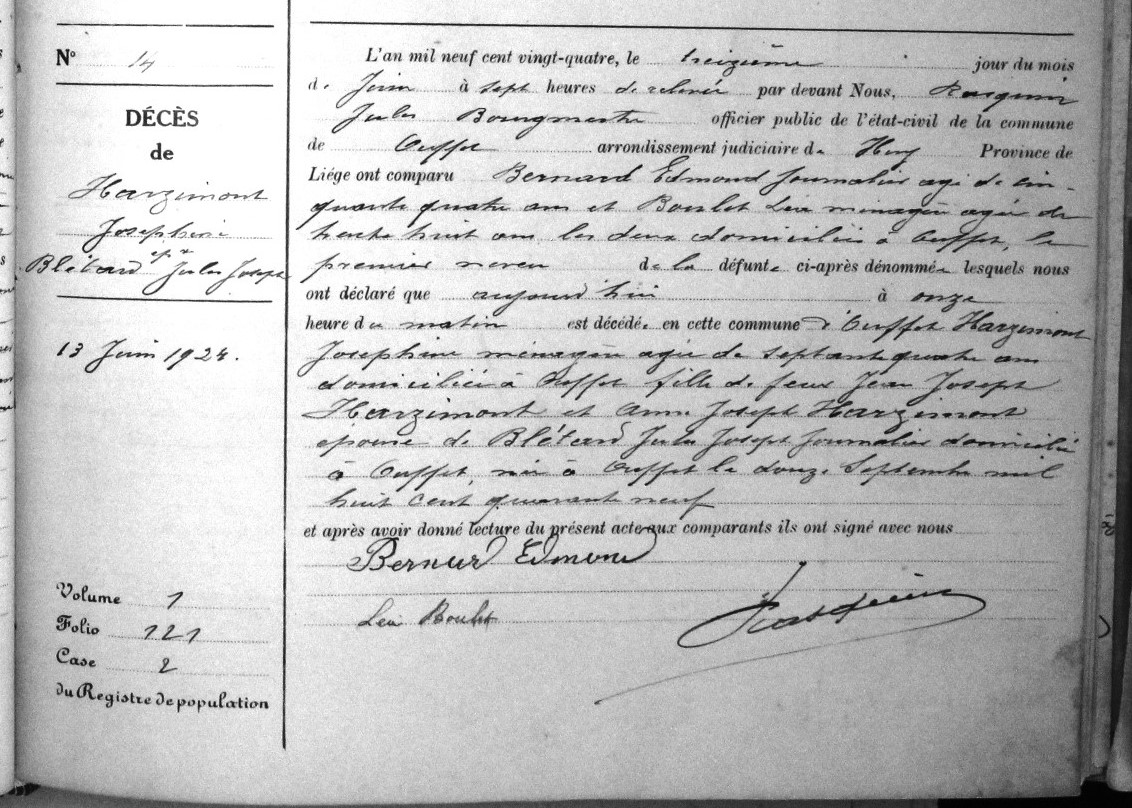 N° 14
DÉCÈS
de
Harzimont
Josephine
épse
Blétard Jules Joseph
13 Juin 1924.
Volume 1
Folio 121
Case 2
du Registre de population
L'an mil neuf cent vingt-quatre, le treizième jour du mois
de Juin à sept heures de relevée par devant Nous,
Jules Bourgmestre officier public de l'état-civil de la commune
de Ouffet arrondissement judiciaire de Huy Province de
Liége ont comparu Bernard Edmond Journalier agé de cin-
quante quatre ans et Boulet Lea ménagère agée de
trente huit ans les deux domiciliés à Ouffet, le
premier neveu de la défunte ci-après dénommée lesquels nous
ont déclaré que aujourd'hui à onze
heure du matin est décédée en cette commune d'Ouffet Harzimont
Josephine ménagère agée de septante quatre ans
domiciliée à Ouffet fille de feux Jean Joseph
Harzimont et Anne Joseph Harzimont
épouse de Blétard Jules Joseph Journalier domicilié
à Ouffet, née à Ouffet le douze Septembre mil
huit cent quarante neuf
et après avoir donné lecture du présent acte aux comparants ils ont signé avec nous
Bernard Edmond
Lea Boulet